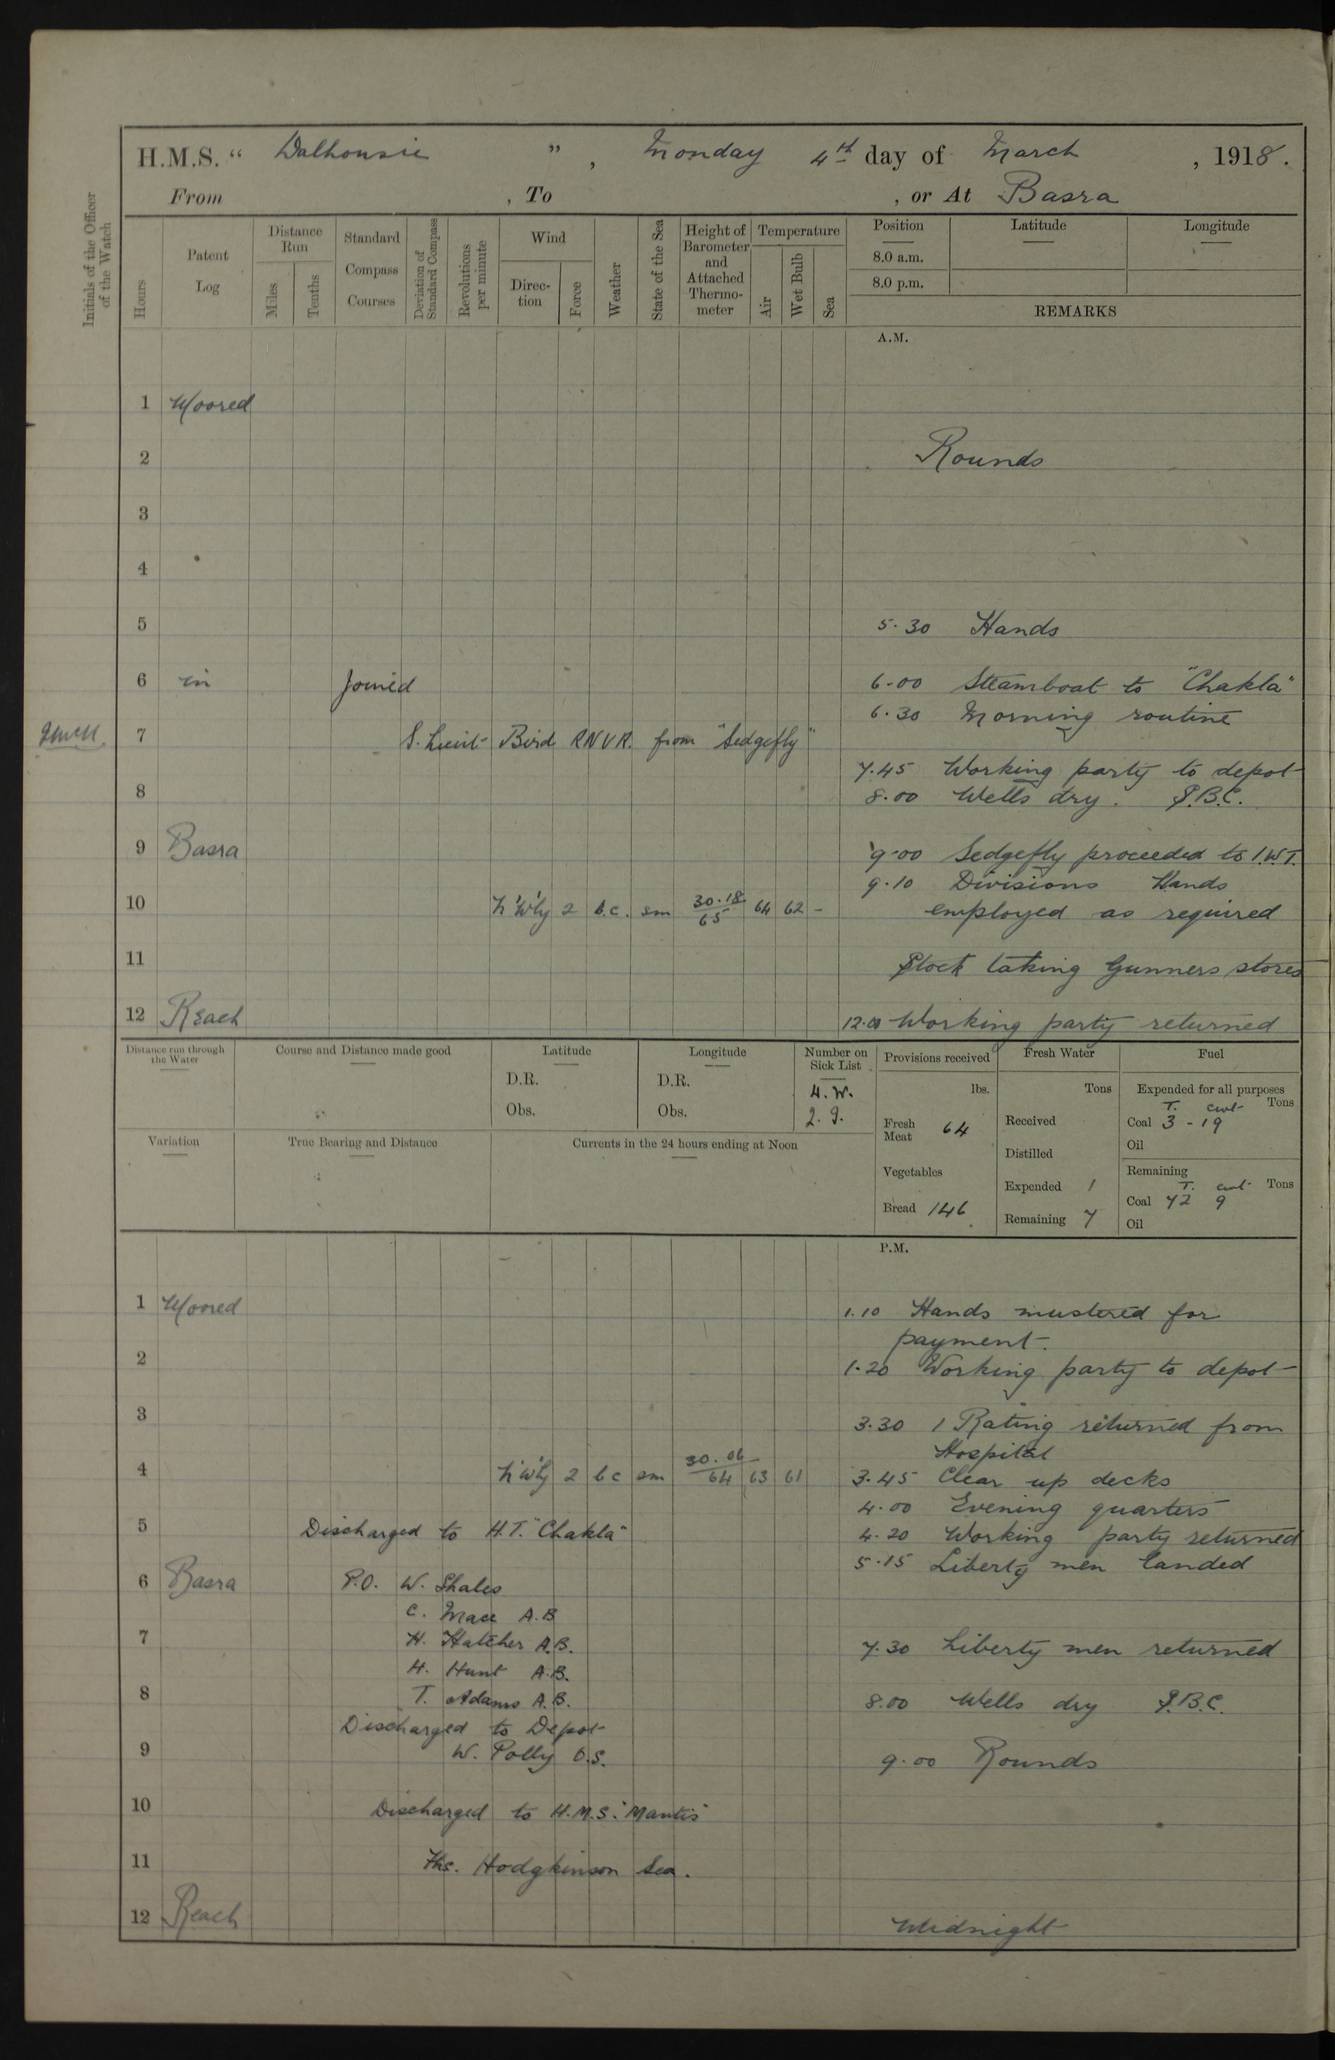 H.M.S. “ Dalhousie ” , Monday 4th day of March , 1918.
From , To , or At Basra
Initials of the Officer of the Watch
Hours
Patent Log
Distance Run
Miles
Tenths
Standard Compass Courses
Deviation of Standard Compass
Revolutions per minute
Wind
Direction
Force
Weather
State of the Sea
Height of Barometer and Attached Thermometer
Temperature
Air
Wet Bulb
Sea
Position
Latitude
Longitude
8.0 a.m.
8.0 p.m.
REMARKS
A.M.
1 Moored
2 Rounds
3
4
5 5.30 Hands
6 in Joined 6.00 Steamboat to "Chakla"
6.30 Morning routine
7 S. Lieut Bird RNVR. from "Sedgefly"
7.45 Working party to depot
8 8.00 Wells dry. P.B.C.
9 Basra 9.00 Sedgefly proceeded to I.W.T.
9.10 Divisions Hands
10 N'W'ly 2 b.c. sm 30.18 / 65 64 62 - employed as required
11 Stock taking Gunners stores
12 Reach 12.00 Working party returned
Distance run through the Water
Course and Distance made good
Latitude
D.R.
Obs.
Longitude
D.R.
Obs.
Number on Sick List
4. W.
2. I.
Provisions received
lbs.
Fresh Meat 64
Vegetables
Bread 146
Fresh Water
Tons
Received
Distilled
Expended 1
Remaining 7
Fuel
Expended for all purposes
T. cwt Tons
Coal 3 - 19
Oil
Remaining
T. cwt Tons
Coal 72 9
Oil
Variation
True Bearing and Distance
Currents in the 24 hours ending at Noon
P.M.
1 Moored 1.10 Hands mustered for
payment.
2 1.20 Working party to depot
3 3.30 1 Rating returned from
Hospital
4 N'W'ly 2 bc sm 30.06 / 64 63 61 3.45 Clear up decks
4.00 Evening quarters
5 Discharged to H.T. "Chakla" 4.20 Working party returned
5.15 Liberty men landed
6 Basra P.O. W. Shales
C. Mace A.B
7 H. Hatcher A.B. 7.30 Liberty men returned
H. Hunt A.B.
8 T. Adams A.B. 8.00 Wells dry P.B.C.
Discharged to Depot
9 W. Polly O.S. 9.00 Rounds
10 Discharged to H.M.S. "Mantis"
11 Hodgkinson Sea.
12 Reach Midnight